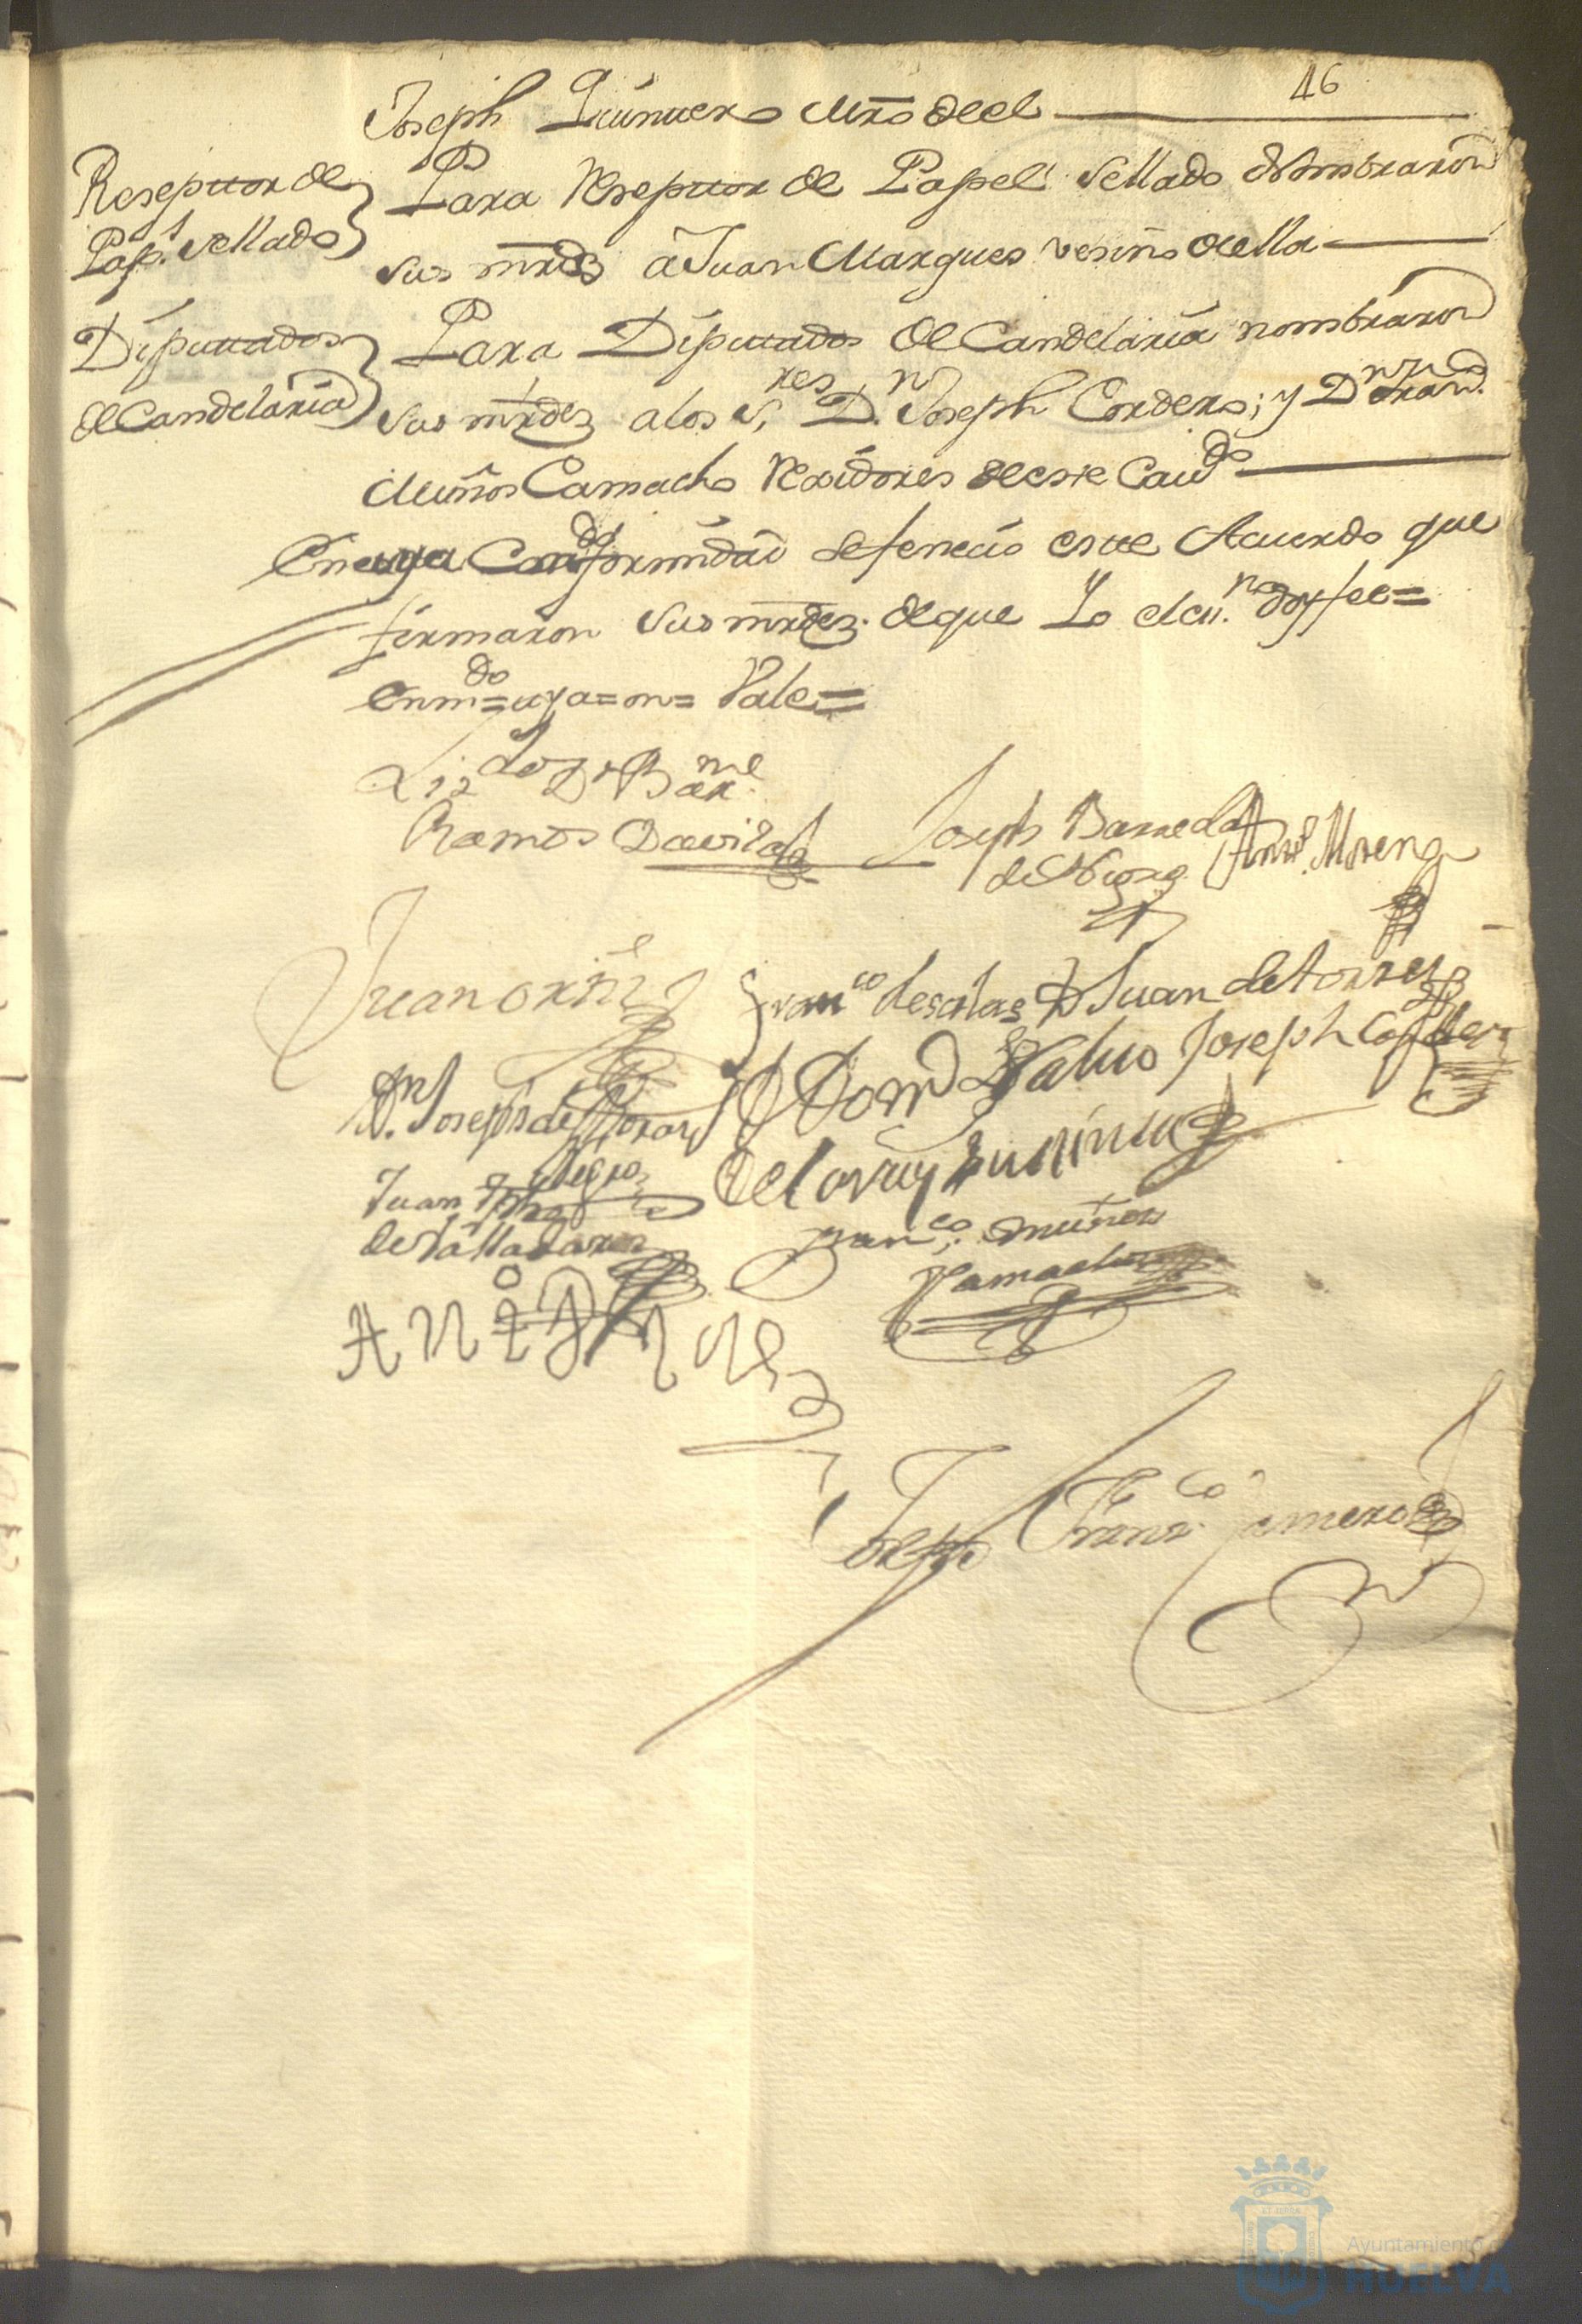 46
Joseph Quintero Mro. de el
Reseptor de
Pap.l Sellado
Para Reseptor de Papel Sellado Nombraron
sus mrds â Juan Marques vesino de ella
Diputados
de Candelaria
Para Diputados de Candelaria nombraron
sus mrdez a los S.res D.n Joseph Cordero; y D.n Fran.co
Muños Camacho Rexidores de este Cavdo
En cuya Conformidad se fenecio este Acuerdo que
firmaron sus mrdez. de que Yo el es.no doy fee=
Enmdo=uya=on= Vale=
Lizdo. D.n Barme
Ramos Davila
Joseph Barreda
Anto. Moreno
Juan
Franco de salas
Juan de torres
D.n Joseph de
Joseph Cordero
Juan
de Valladares
Quintero
Franco. Muños
Camacho
Ante
Joseph Franco. Jamero
Ayuntamiento
HUELVA